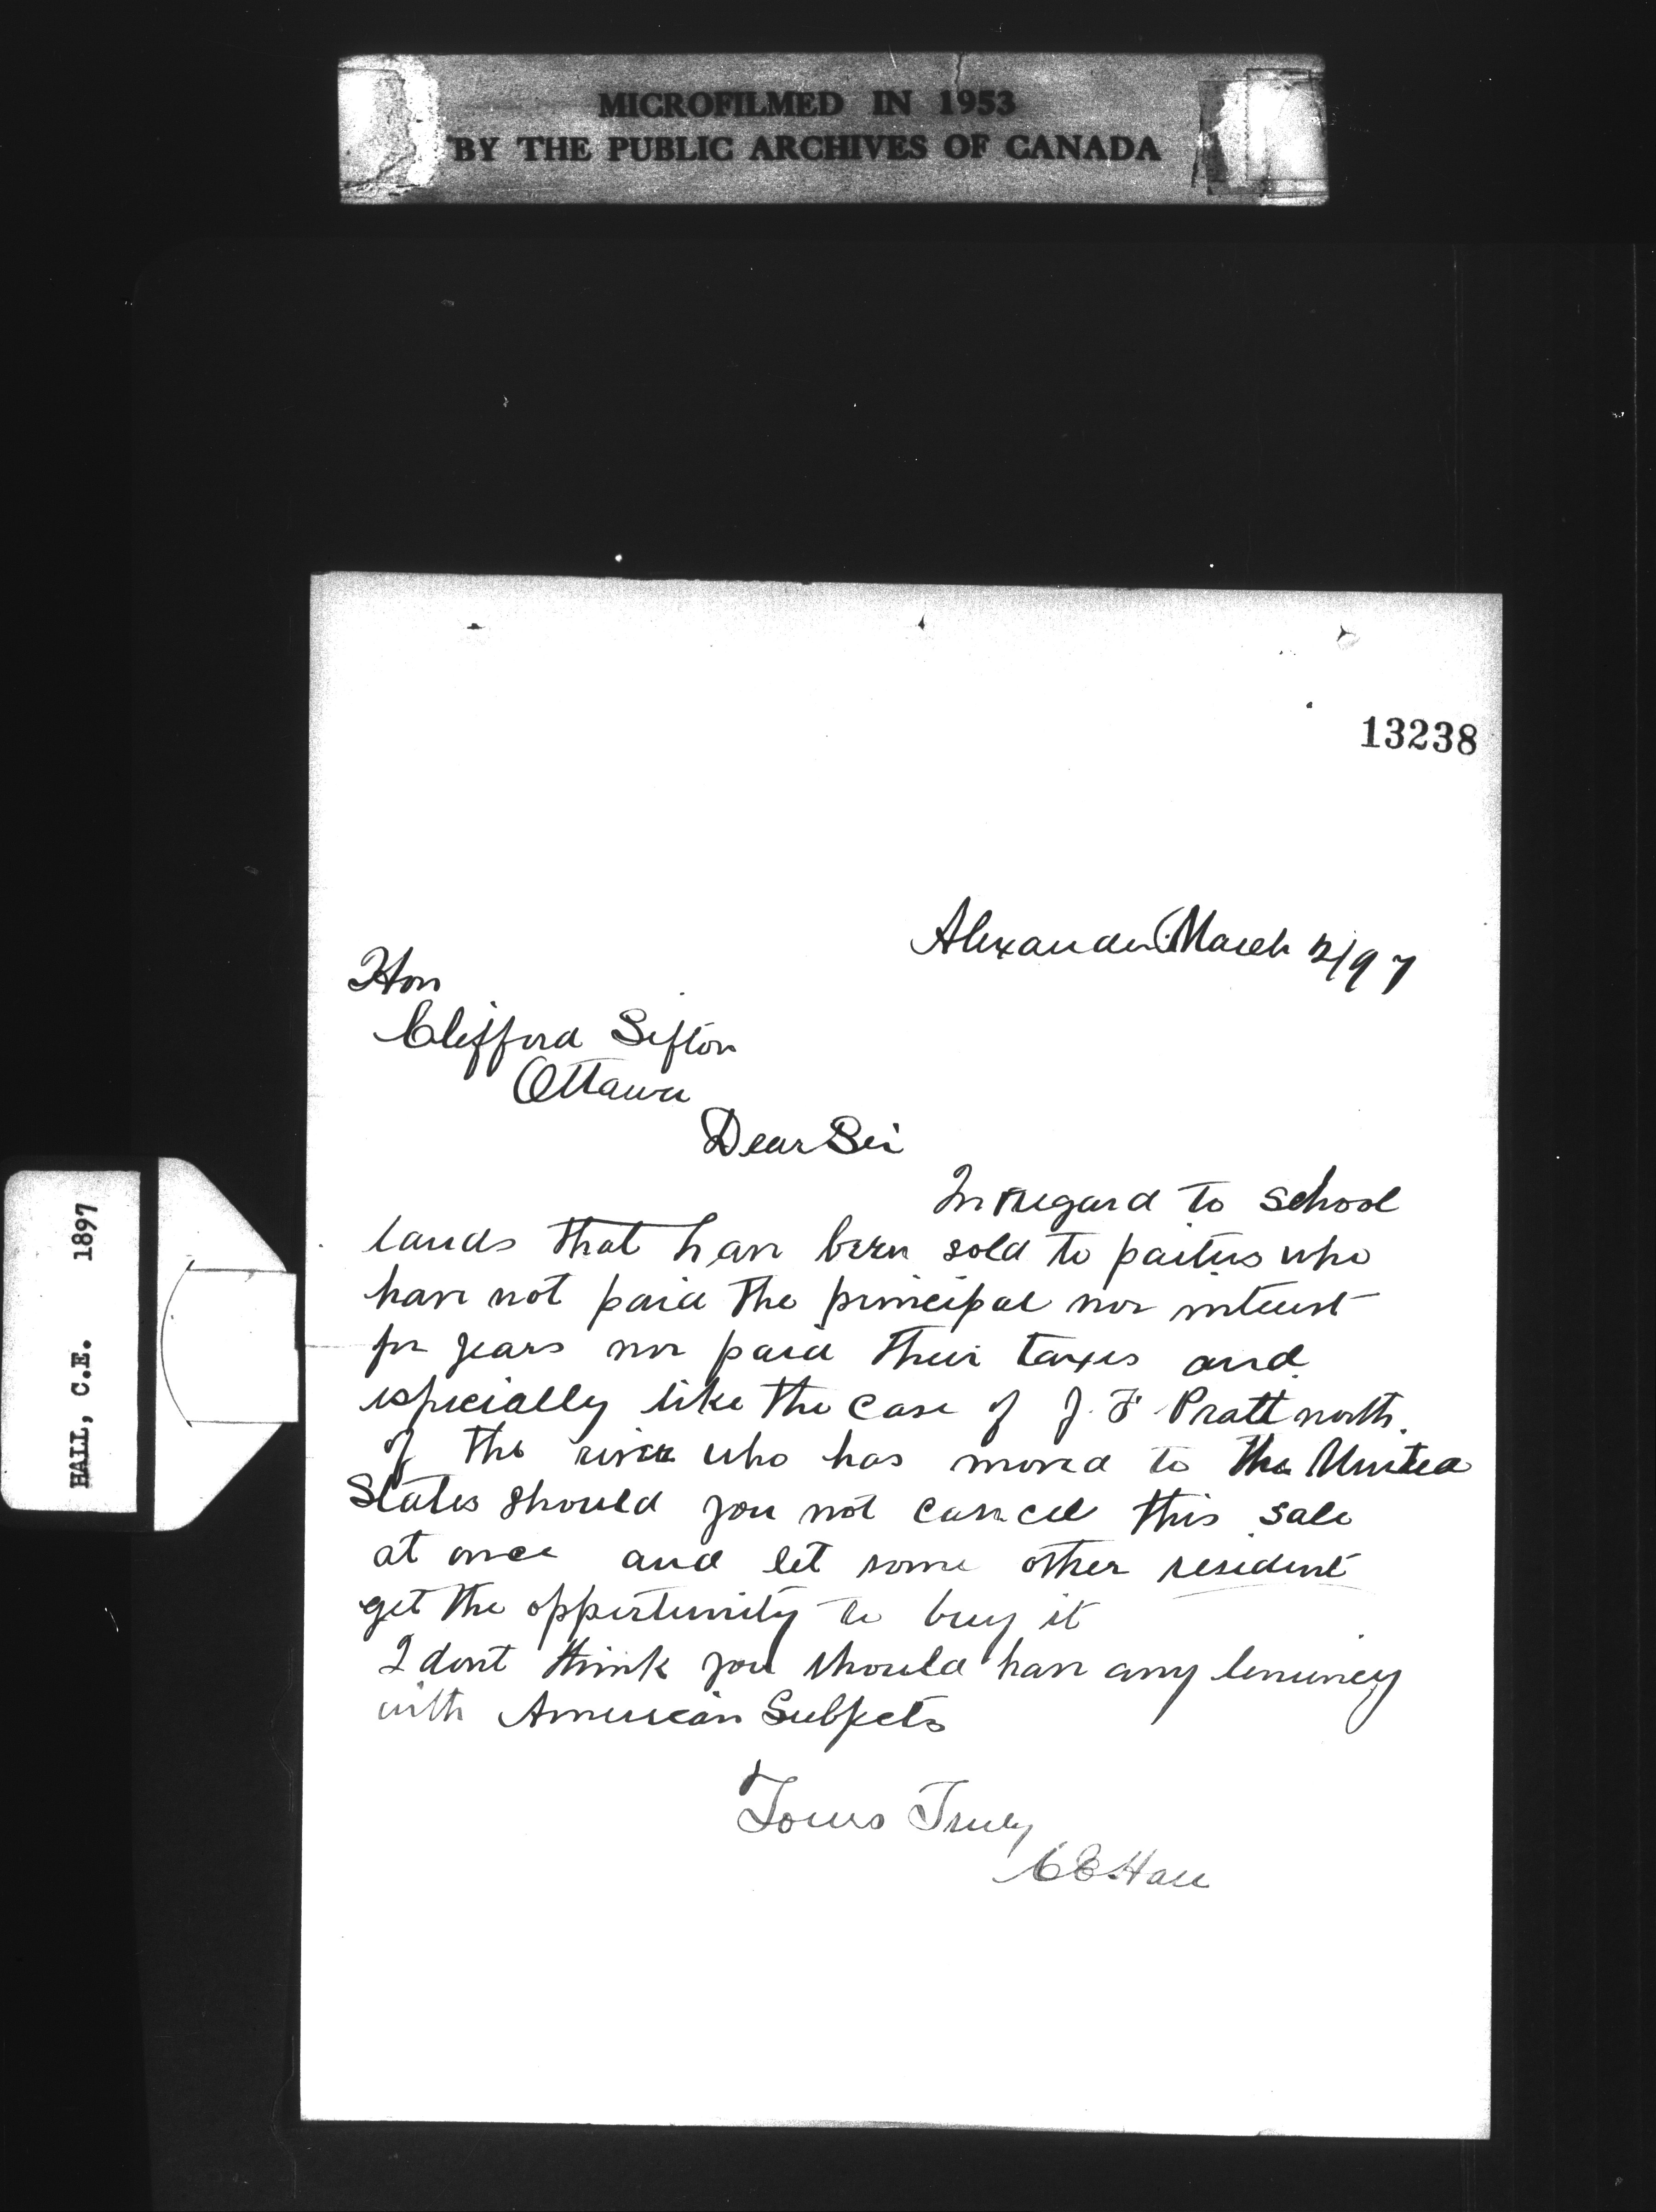 MICROFILMED IN 1953
BY THE PUBLIC ARCHIVES OF CANADA
13238
Alexander March 2/97
Hon
Clifford Sifton
Ottawa
Dear Sir
In regard to school
lands that have been sold to parties who
have not paid the principal nor interest
for years nor paid their taxes and
especially like the case of J. F. Pratt north
of the river who has moved to the United
States should you not cancel this sale
at once and let some other resident
get the opportunity to buy it
I dont think you should have any leniency
with American Subjects
Yours Truly
C E Hall
HALL, C.E. 1897